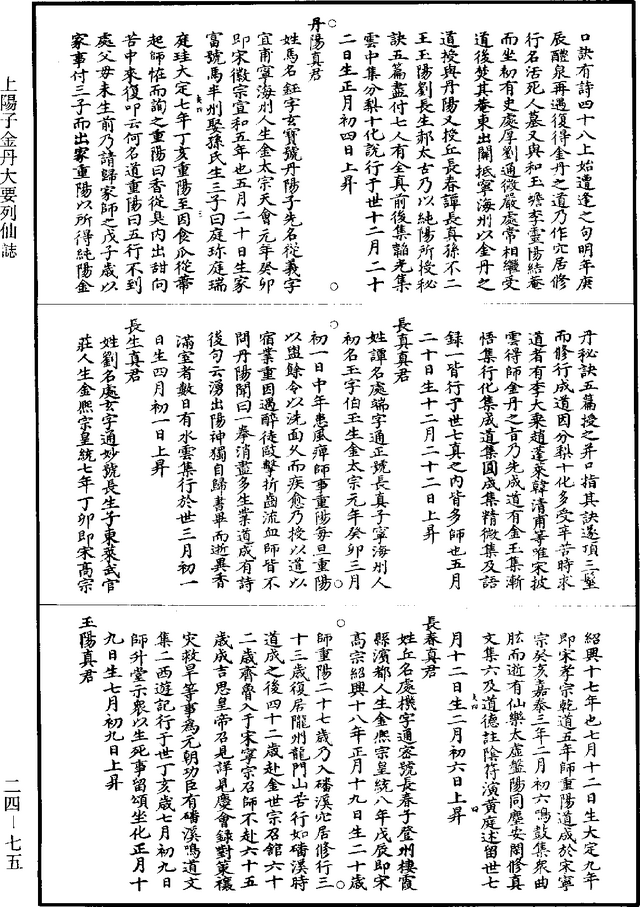 上陽子金丹大要列仙誌
二四—七五
口訣有詩四十八上始遭逢之句明年庚
辰醴泉再遇復得金丹之道乃作穴居修
行名活死人墓又與和玉蟾李靈陽結菴
而坐初有史處厚劉通微嚴處常相繼受
道後焚其菴東出關抵寧海州以金丹之
道授與丹陽又授丘長春譚長真孫不二
王玉陽劉長生郝太古乃以純陽所授秘
訣五篇盡付七人有全真前後集韜光集
雲中集分梨十化說行于世十二月二十
二日生正月初四日上昇
丹陽真君
姓馬名鈺字玄寶號丹陽子先名從義字
宜甫寧海州人生金太宗天會元年癸卯
即宋徽宗宣和五年也五月二十日生家
富號馬半州娶孫氏生三子曰庭珍庭瑞
庭珪大定七年丁亥重陽至因食瓜從蒂
起師恠而詢之重陽曰香從臭內出甜向
苦中來復叩云何名道重陽曰五行不到
處父母未生前乃請歸家師之戊子歲以
家事付三子而出家重陽以所得純陽金
丹秘訣五篇授之并口指其訣遂頂三髻
而修行成道因分梨十化多受辛苦時求
道者有李大乘趙蓬萊韓清甫等唯宋披
雲得師金丹之旨乃先成道有金玉集漸
悟集行化集成道集圓成集精微集及語
錄一皆行于世七真之內皆多師也五月
二十日生十二月二十二日上昇
長真真君
姓譚名處端字通正號長真子寧海州人
初名玉字伯玉生金太宗元年癸卯三月
初一日中年患風痺師事重陽每旦重陽
以盥餘令以洗面久而疾愈乃授以道以
宿業重因過醉徒毆擊折齒流血師皆不
問丹陽聞曰一拳消盡多生業道成有詩
後句云湧出陽神獨自歸書畢而逝異香
滿室者數日有水雲集行於世三月初一
日生四月初一日上昇
長生真君
姓劉名處玄字通妙號長生子東萊武官
莊人生金熙宗皇統七年丁卯即宋高宗
紹興十七年也七月十二日生大定九年
即宋孝宗乾道五年師重陽道成於宋寧
宗癸亥嘉泰三年二月初六鳴鼓集衆曲
肱而逝有仙樂太虛盤陽同塵安閑修真
文集六及道德註陰符演黃庭述留世七
月十二日生二月初六日上昇
長春真君
姓丘名處機字通密號長春子登州棲霞
縣濱都人生金熙宗皇統八年戊辰即宋
高宗紹興十八年正月十九日生二十歲
師重陽二十七歲乃入磻溪穴居修行三
十三歲復居隴州龍門山苦行如磻溪時
道成之後四十二歲赴金世宗召館六十
二歲齊魯入于宋寧宗召師不赴六十五
歲成吉思皇帝召見詳見慶會錄對策禳
災救旱等事為元朝功臣有磻溪鳴道文
集二西遊記行于世丁亥歲七月初九日
師升堂示衆以生死事留頌坐化正月十
九日生七月初九日上昇
玉陽真君